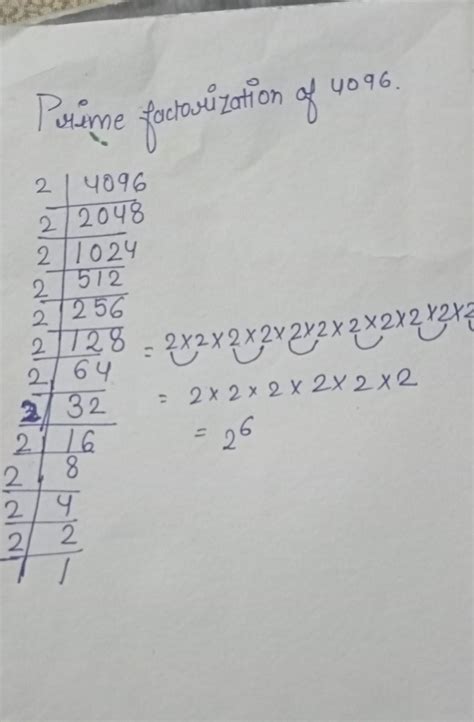 Prime factorization of 4096.
2 | 4096
2 | 2048
2 | 1024
2 | 512
2 | 256
2 | 128
2 | 64
2 | 32
2 | 16
2 | 8
2 | 4
2 | 2
1
= 2×2×2×2×2×2×2×2×2×2×2
= 2×2×2×2×2×2
= 2⁶